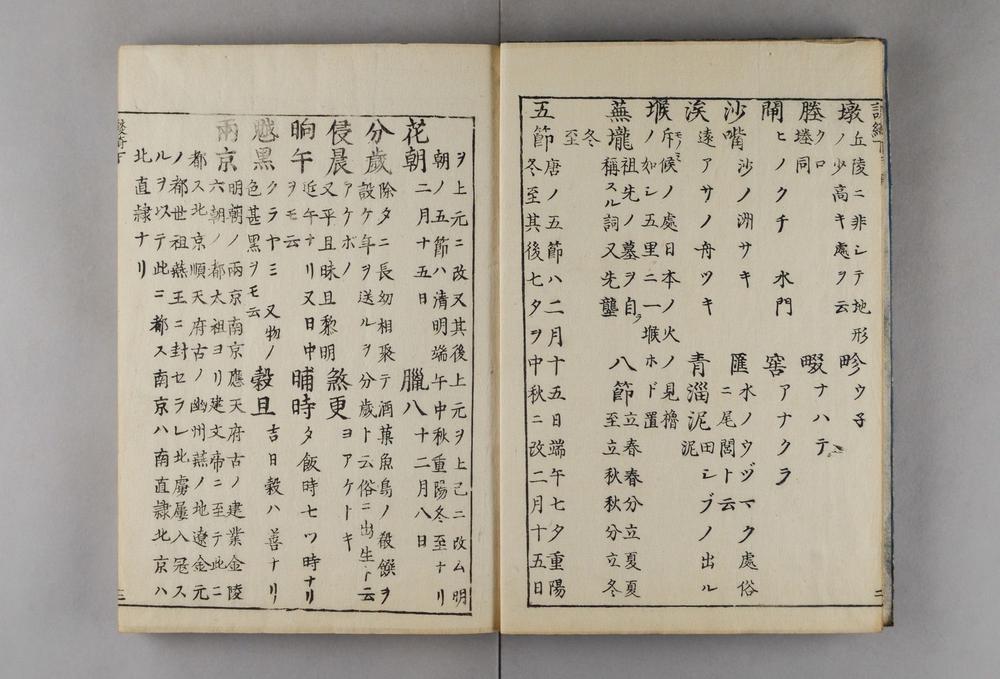 墩 丘陵ニ非シテ地形ノ少高キ處ヲ云 畛 ウ子
塍 クロ 同 畷 ナハテ
閘 ヒノクチ 水門 窖 アナクラ
沙嘴 沙ノ洲サキ 匯 水ノウヅマク處俗ニ尾閭ト云
涘 遠アサノ舟ツキ 青淄泥 田シブノ出ル泥
堠 斥候ノ處日本ノ火ノ見櫓ノ如シ五里ニ一堠ホド置
蕪壠 祖先ノ墓ヲ自ラ稱スル詞又先壟 八節 立春春分立夏夏至立秋秋分立冬冬至
五節 唐ノ五節ハ二月十五日端午七夕重陽冬至其後七夕ヲ中秋ニ改二月十五日
ヲ上元ニ改又其後上元ヲ上己ニ改ム明朝ノ五節ハ清明端午中秋重陽冬至ナリ
花朝 二月十五日 臘八 十二月八日
分歲 除夕ニ長幼相聚テ酒菓魚鳥ノ殽饌ヲ設ケ年ヲ送ルヲ分歲ト云俗ニ出生ト云
侵晨 アケボノ 又平旦昧旦黎明 煞更 ヨアケトキ
晌午 近午ナリ又日中ヲモ云 晡時 夕飯時七ツ時ナリ
魆黒 クラヤミ 又物ノ色甚黒ヲモ云 穀旦 吉日穀ハ善ナリ
兩京 明朝ノ兩京南京應天府古ノ建業金陵六朝ノ都太祖ヨリ建文帝ニ至テ此ニ
都ス北京順天府古ノ幽州燕ノ地遼金元ノ都世祖燕王ニ封セラレ北虜屢入冦ス
ルヲ以テ此ニ都ス南京ハ南直隷北京ハ北直隷ナリ